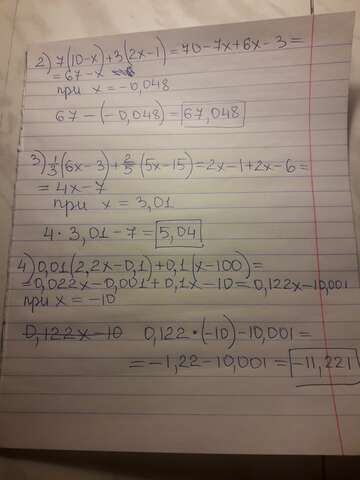 2) 7(10-x)+3(2x-1)=70-7x+6x-3=
=67-x
при x=-0,048
67-(-0,048)=67,048
3) 1/3(6x-3)+2/5(5x-15)=2x-1+2x-6=
=4x-7
при x=3,01
4·3,01-7=5,04
4) 0,01(2,2x-0,1)+0,1(x-100)=
=0,022x-0,001+0,1x-10=0,122x-10,001
при x=-10
0,122x-10 0,122·(-10)-10,001=
=-1,22-10,001=-11,221